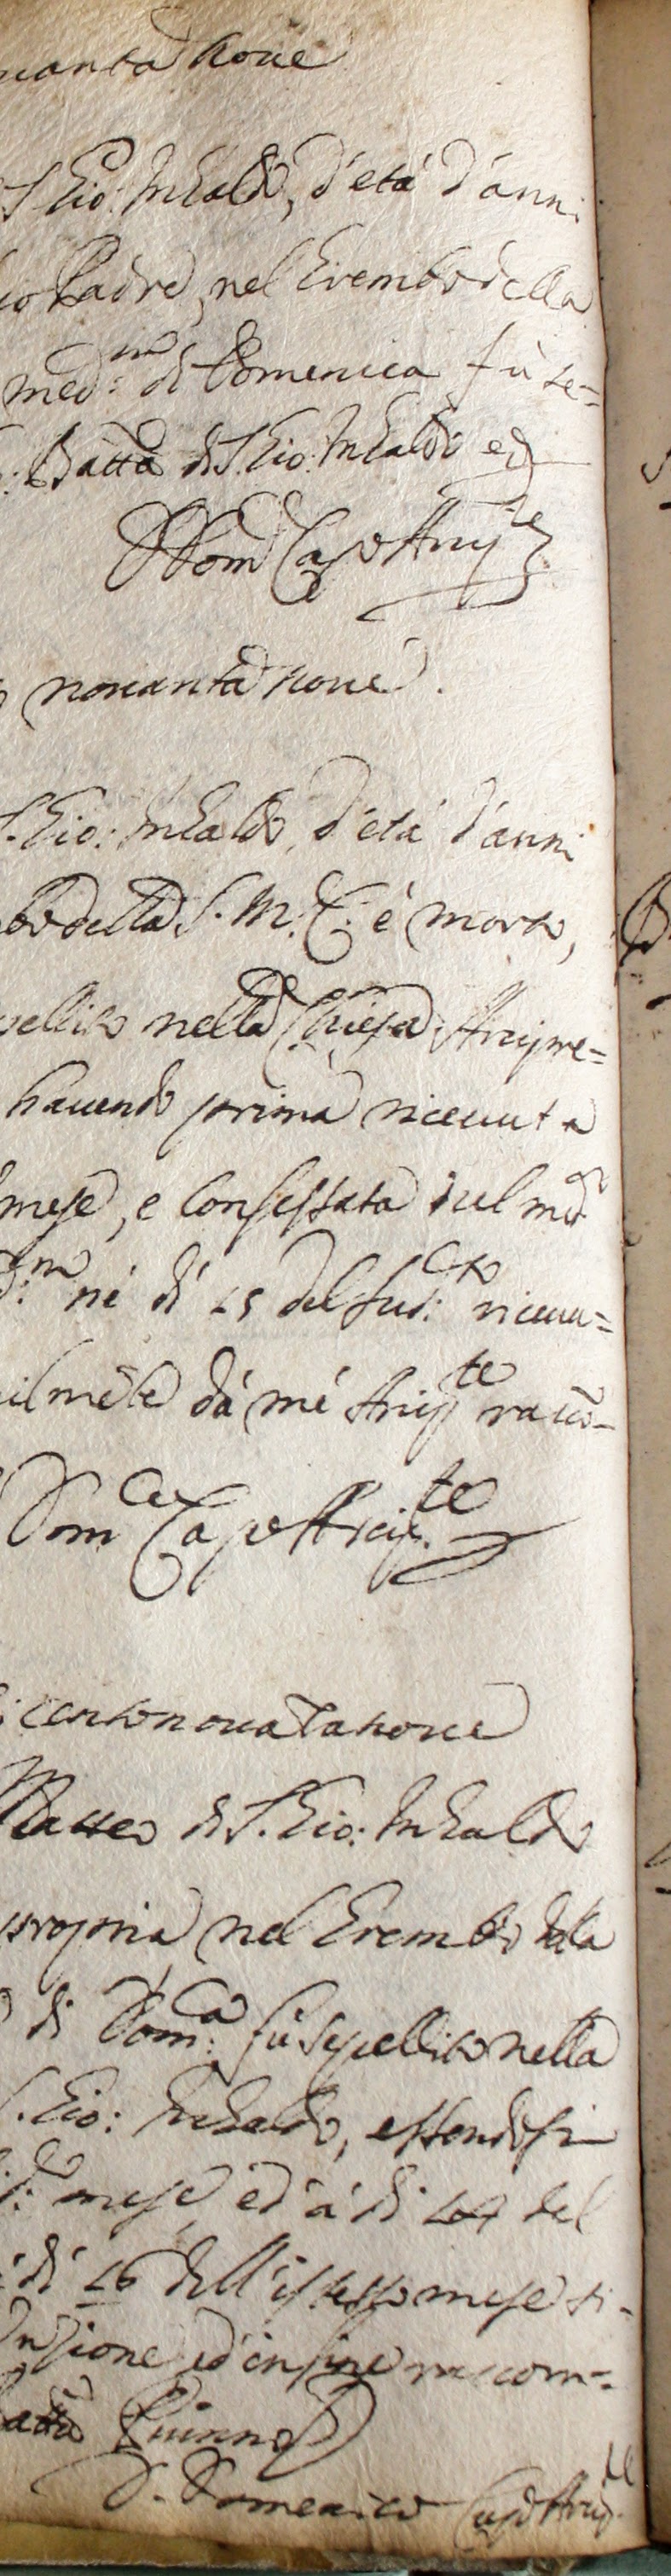 uanta noue
S. Gio: Inhaldo, d'età d'anni
io Padre, nel Grembo della
med:mo di Domenica fù se=
: Batta di S. Gio: Inhaldo ed
D Dom Capo Arcip.te
novanta noue.
S. Gio: Inhaldo, d'età d'anni
bo della S. M. C. è morto,
pellito nella Chiesa Arcipre=
hauendo prima riceuuta
mese, e Confessata sul md.o
d:mo nè dì 25 del sud:cto riceuu=
ilmẽte dà mè Arcip.te racco-
Dom.co Capo Arcip.te
centonouatanoue
Matteo di S. Gio: Inhaldo
propria nel Grembo della
di Dom:ca fù sepellito nella
S. Gio: Inhaldo, essendosi
d:o mese, ed à dì 24 del
dì 26 dell'istesso mese si-
Unzione ed' infine raccom=
atta
D. Domenico Capo Arcip.te